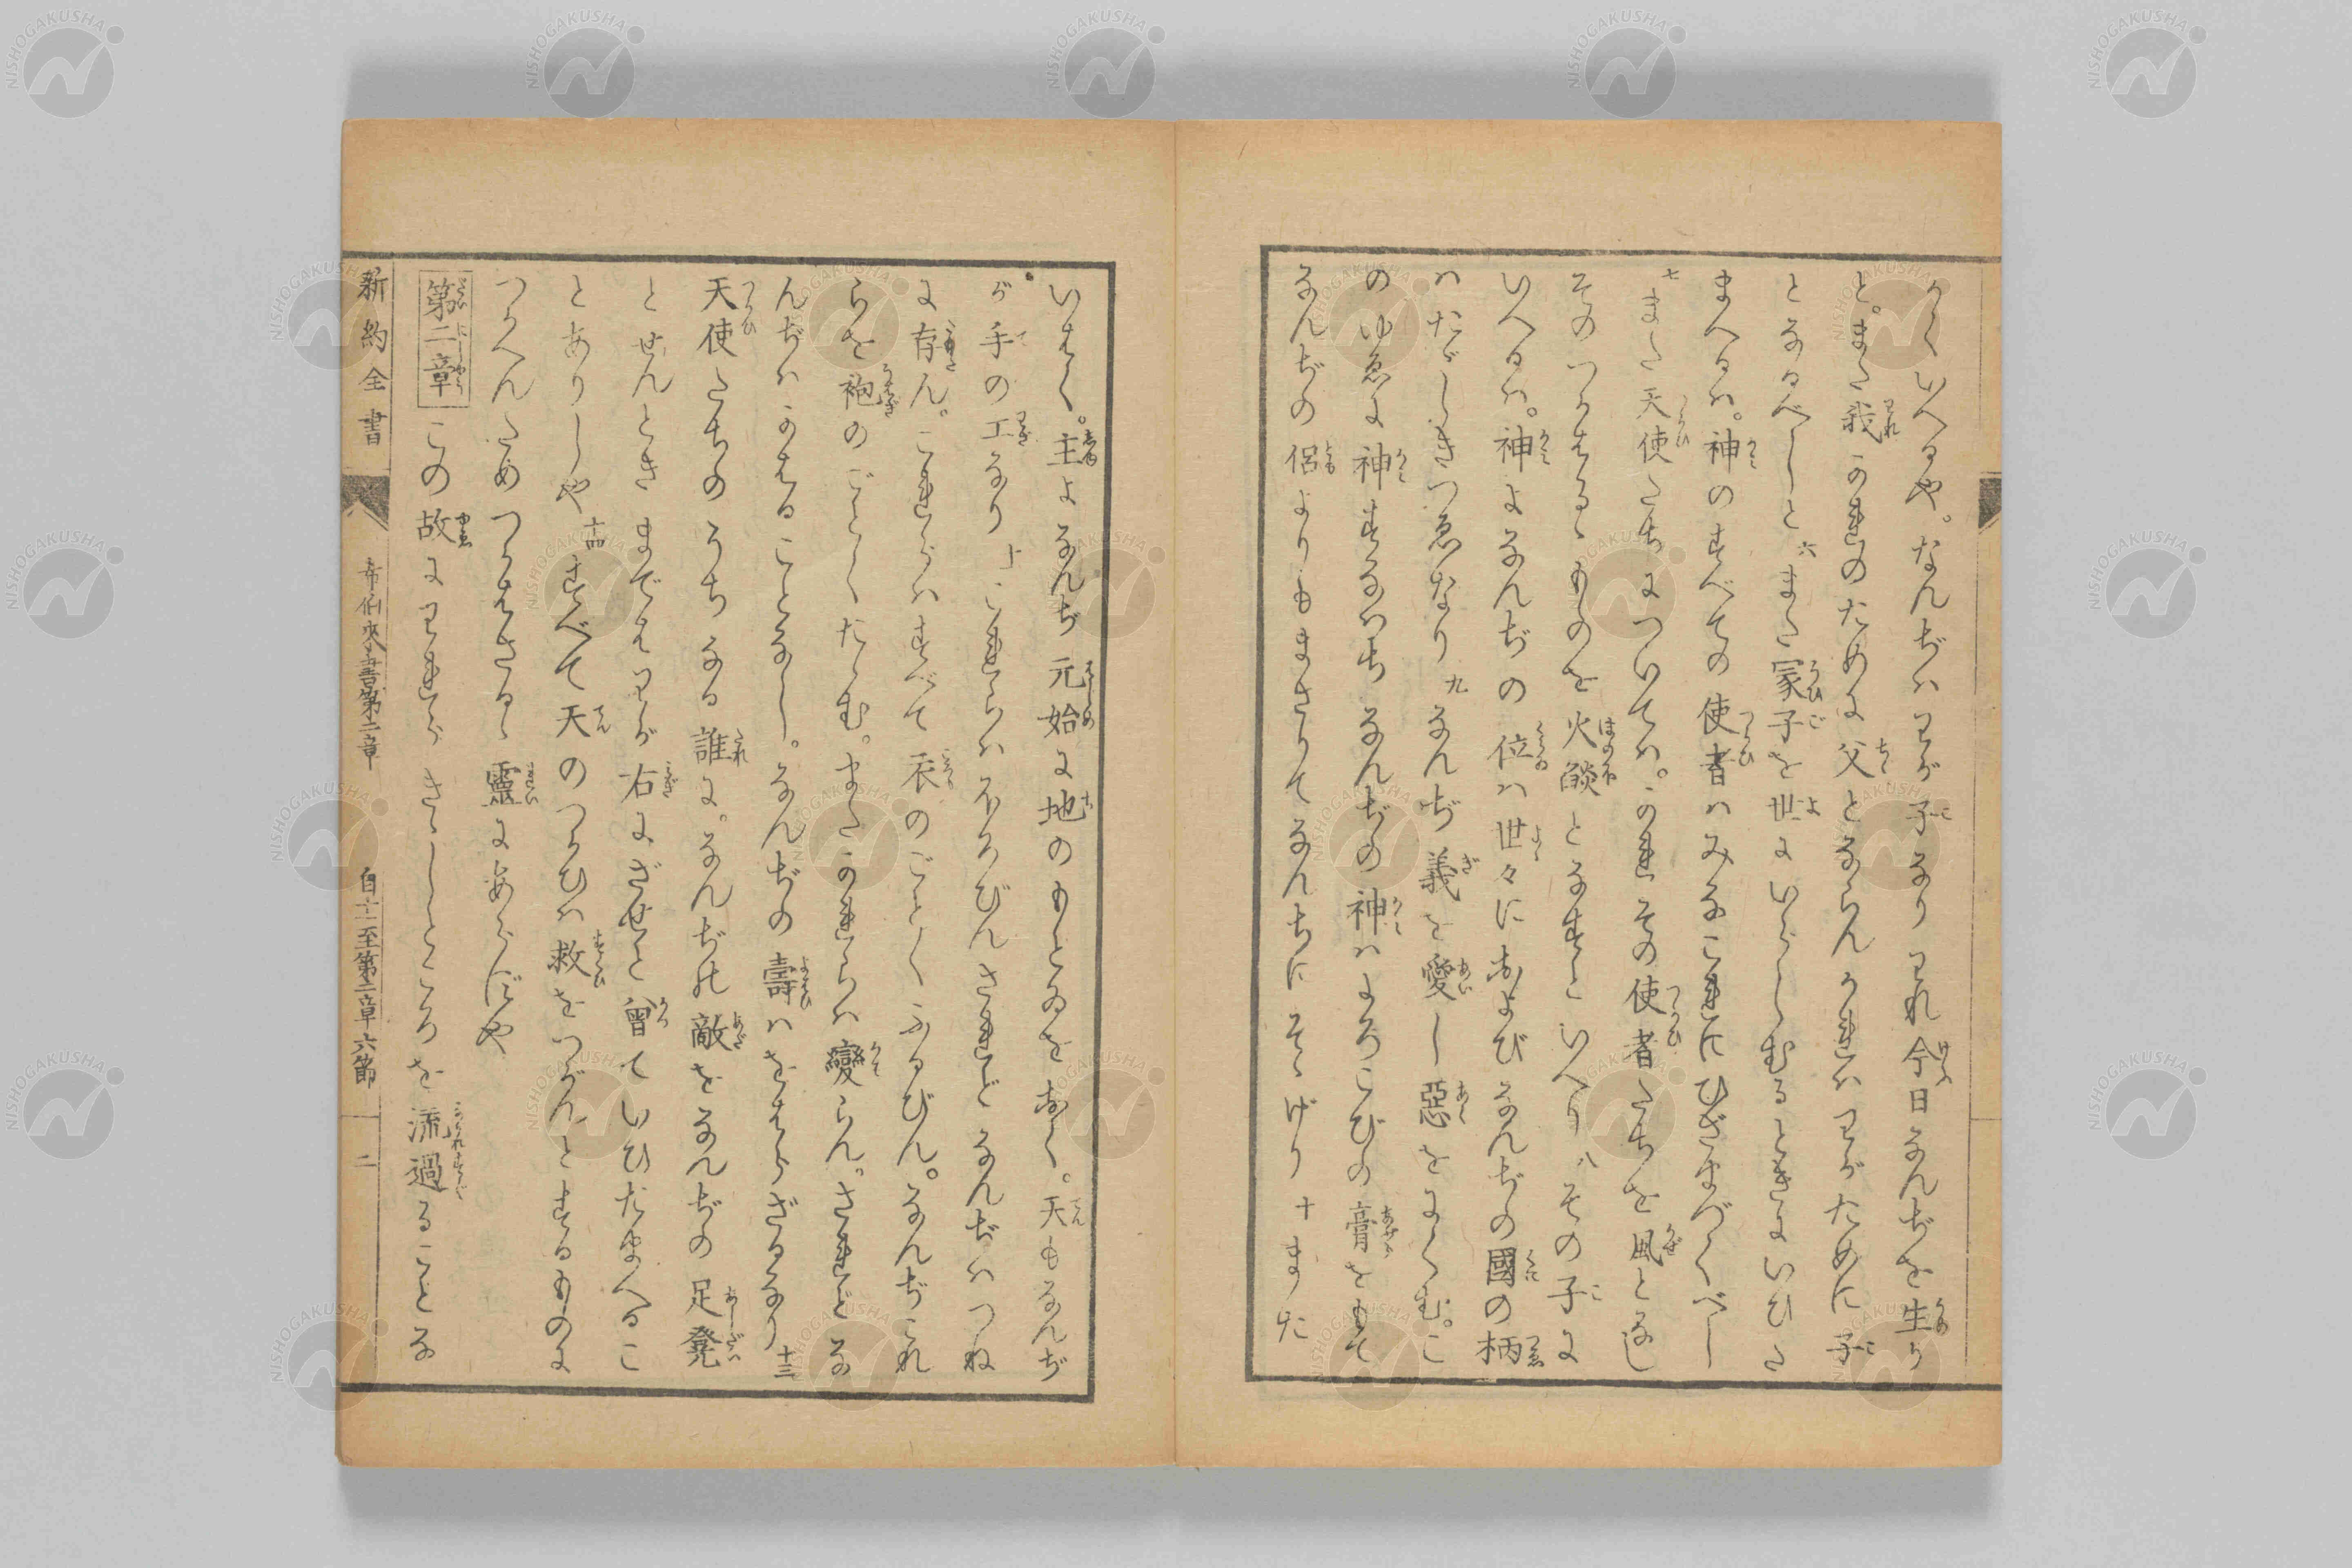 かくいへるや。なんぢハわが子なりわれ今日なんぢを生り
と。また我かれのために父とならんかれハわがために子
となるべしと六また冢子を世にいらしむるときにいひた
まへるハ。神のすべての使者ハみなこれにひざまづくべし
七また天使たちについてハ。かれその使者たちを風となし
そのつかはるゝものを火燄となすといへり八その子に
いへるハ。神よなんぢの位ハ世々におよびなんぢの國の柄
ハたゞしきつゑなり九なんぢ義を愛し惡をにくむ。こ
のゆゑに神すなハちなんぢの神ハよろこびの膏をもて
なんぢの侶よりもまさりてなんぢにそゝげり十また
いはく。主よなんぢ元始に地のもとゐをおく。天もなんぢ
が手の工なり十一これらハほろびんされどなんぢハつね
に存ん。これらハすべて衣のごとくふるびん。なんぢこれ
らを袍のごとくたゝむ。またかれらハ變らん。されどな
んぢハかはることなし。なんぢの壽ハをはらざるなり十三
天使たちのうちなる誰に。なんぢの敵をなんぢの足凳
とせんときまではわが右にざせと曾ていひたまへるこ
とありしや十四すべて天のつかひハ救をつがんとするものに
つかへんためつかはさるゝ靈にあらずや
第二章この故にわれらきゝしところを流過ることな
新約全書 希伯來書第二章 自十一至第二章六節 二